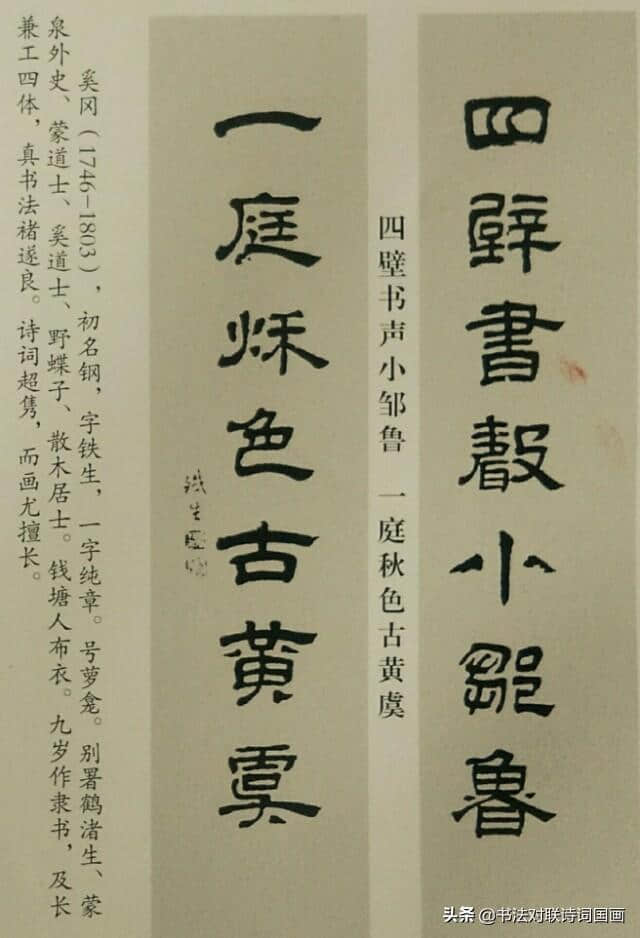 四壁書聲小鄒魯
四壁书声小邹鲁 一庭秋色古黄虞
一庭秌色古黄虞
鐵生
奚冈（1746-1803），初名钢，字铁生，一字纯章。号萝龛。别署鹤渚生、蒙
泉外史、蒙道士、奚道士、野蝶子、散木居士。钱塘人布衣。九岁作隶书，及长
兼工四体，真书法褚遂良。诗词超隽，而画尤擅长。
头条 @书法对联诗词国画